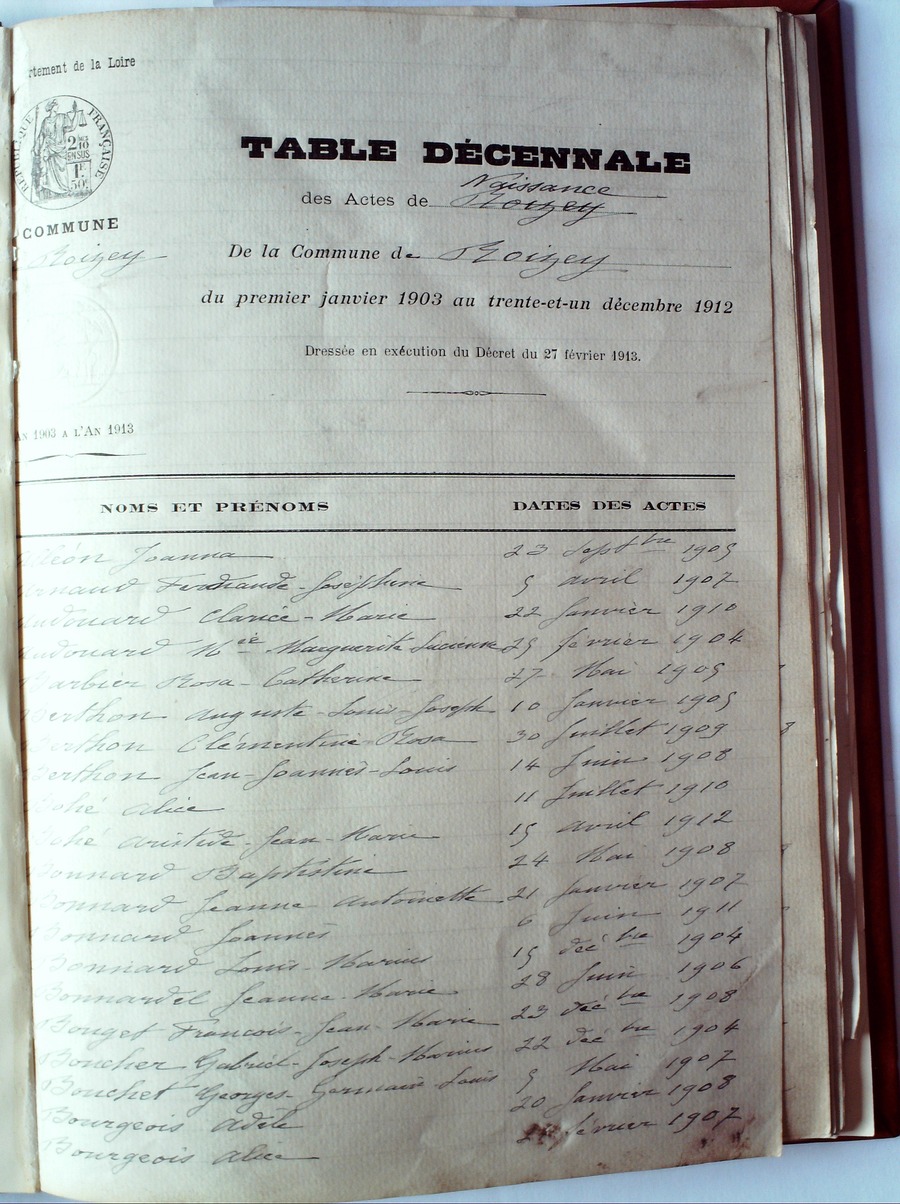 rtement de la Loire
RÉPUBLIQUE FRANÇAISE
2 DES 10
EN SUS
1F
50c
COMMUNE
Roizey
AN 1903 A L'AN 1913
TABLE DÉCENNALE
Naissance
des Actes de Roizey
De la Commune de Roizey
du premier janvier 1903 au trente-et-un décembre 1912
Dressée en exécution du Décret du 27 février 1913.
NOMS ET PRÉNOMS DATES DES ACTES
Joanna 23 Septbre 1905
Fernande-Joséphine 5 avril 1907
Audouard Clarice-Marie 22 Janvier 1910
Audouard Mée Marguerite Lucienne 25 février 1904
Barbier Rosa-Catherine 27 Mai 1905
Berthon Auguste-Louis-Joseph 10 Janvier 1905
Berthon Clémentine Rosa 30 Juillet 1909
Berthon Jean-Joannès-Louis 14 Juin 1908
Bohé Alice 11 Juillet 1910
Bohé Aristide-Jean-Marie 15 avril 1912
Bonnard Baptistine 24 Mai 1908
Bonnard Jeanne Antoinette 21 Janvier 1907
Bonnard Joannès 6 Juin 1911
Bonnard Louis-Marius 15 décbre 1904
Bonnardel Jeanne-Marie 28 Juin 1906
Bouget François-Jean-Marie 23 décbre 1908
Boucher Gabriel-Joseph-Marius 22 décbre 1904
Bouchet Georges-Germain-Louis 5 Mai 1907
Bourgeois Adèle 20 Janvier 1908
Bourgeois Alice février 1907